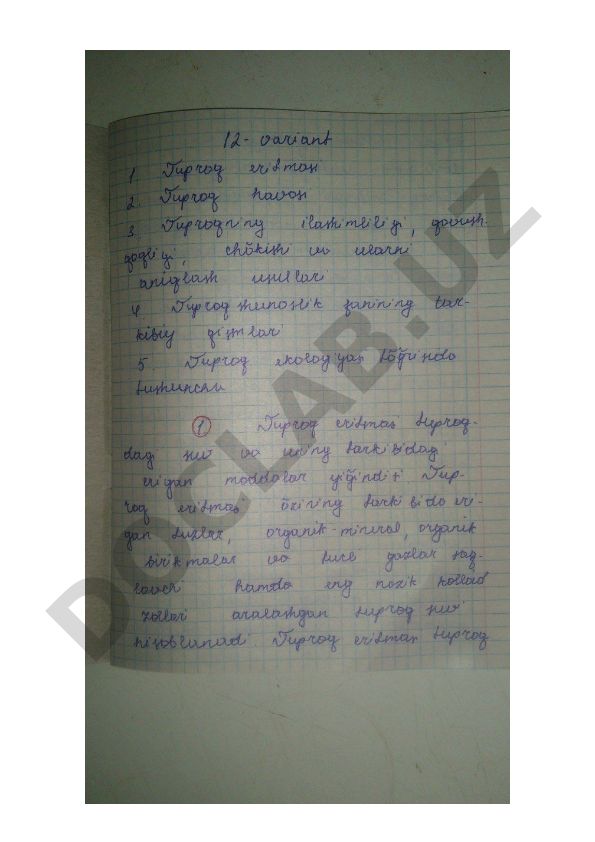 12- variant
1 Tuproq eritmasi
2. Tuproq havosi
3. Tuproqning ilashimliligi, qovush-
qoqligi, chökishi va ularni
aniqlash usullari
4 Tuproqshunoslik fanining tar-
kibiy qismlari
5. Tuproq ekologiyasi tög'risida
tushuncha
1 Tuproq eritmasi tuproq-
dagi suv va uning tarkibidagi
erigan moddalar yiğindisi. Tup-
roq eritmasi özining tarkibida eri-
gan tuzlar, organik-mineral, organik
birikmalar va turli gazlar saq-
lovchi hamda eng nozik kolloid
zollari aralashgan tuproq suvi
hisoblanadi. Tuproq eritmasi tuproq
DOCLAB.UZ